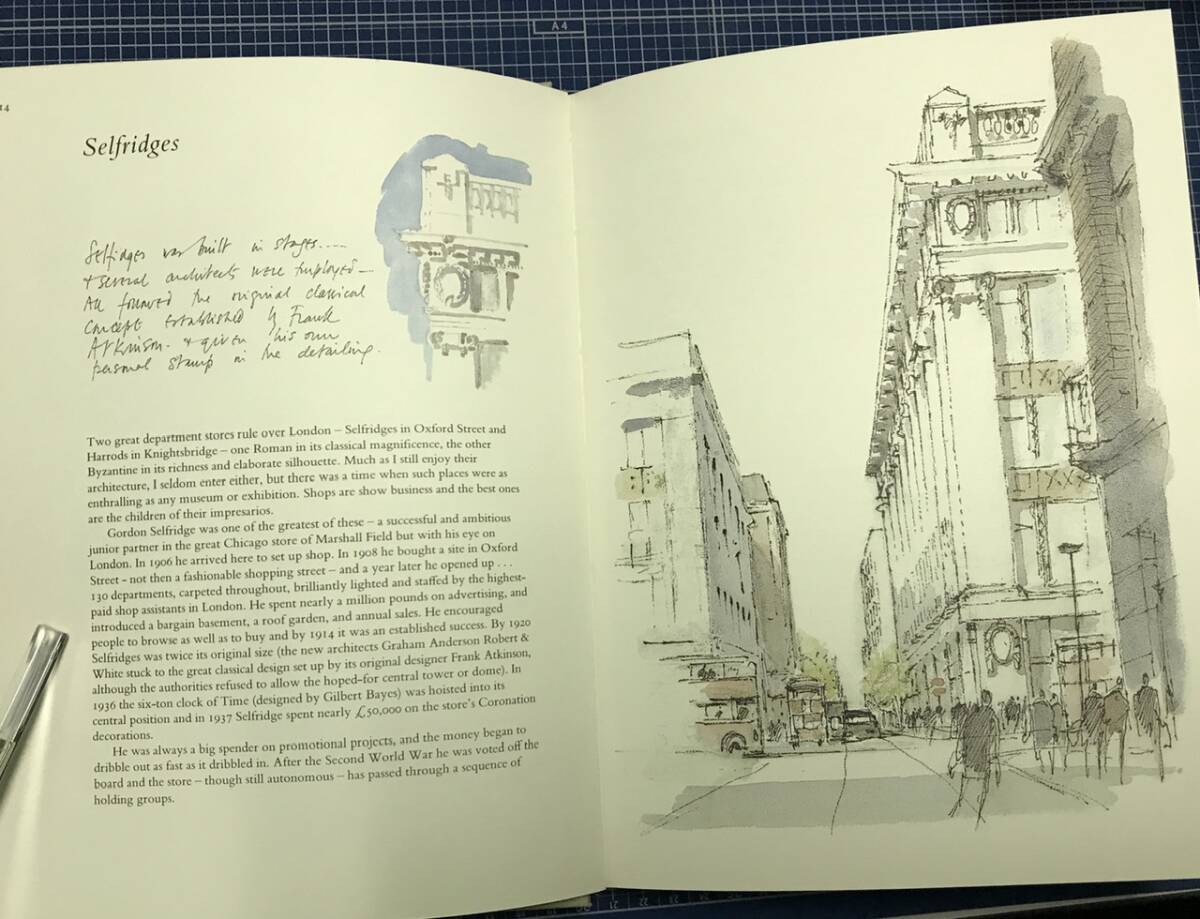 A4
14
Selfridges
Selfridges was built in stages.....
& several architects were employed —
All followed the original classical
concept established by Frank
Atkinson. & given his own
personal stamp in the detailing.
Two great department stores rule over London – Selfridges in Oxford Street and
Harrods in Knightsbridge – one Roman in its classical magnificence, the other
Byzantine in its richness and elaborate silhouette. Much as I still enjoy their
architecture, I seldom enter either, but there was a time when such places were as
enthralling as any museum or exhibition. Shops are show business and the best ones
are the children of their impresarios.
Gordon Selfridge was one of the greatest of these – a successful and ambitious
junior partner in the great Chicago store of Marshall Field but with his eye on
London. In 1906 he arrived here to set up shop. In 1908 he bought a site in Oxford
Street - not then a fashionable shopping street – and a year later he opened up . . .
130 departments, carpeted throughout, brilliantly lighted and staffed by the highest-
paid shop assistants in London. He spent nearly a million pounds on advertising, and
introduced a bargain basement, a roof garden, and annual sales. He encouraged
people to browse as well as to buy and by 1914 it was an established success. By 1920
Selfridges was twice its original size (the new architects Graham Anderson Robert &
White stuck to the great classical design set up by its original designer Frank Atkinson,
although the authorities refused to allow the hoped-for central tower or dome). In
1936 the six-ton clock of Time (designed by Gilbert Bayes) was hoisted into its
central position and in 1937 Selfridge spent nearly £50,000 on the store's Coronation
decorations.
He was always a big spender on promotional projects, and the money began to
dribble out as fast as it dribbled in. After the Second World War he was voted off the
board and the store – though still autonomous – has passed through a sequence of
holding groups.